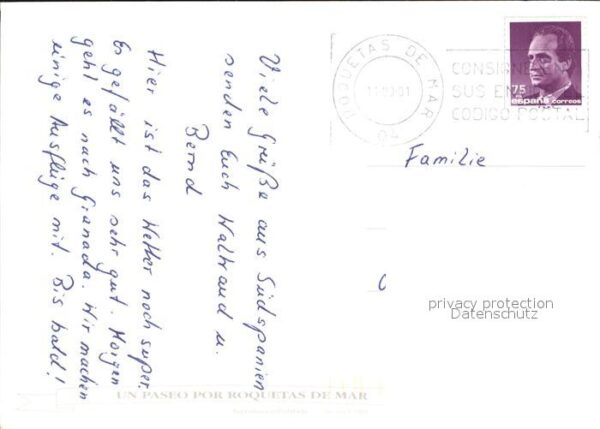 Viele Grüße aus Südspanien
senden Euch Waltraud u.
Bernd
Hier ist das Wetter noch super.
Es gefällt uns sehr gut. Morgen
geht es nach Granada. Wir machen
einige Ausflüge mit. Bis bald!
ROQUETAS DE MAR
04
CONSIGNE
SUS EN
CODIGO POSTAL
75
españa correos
Familie
privacy protection
Datenschutz
UN PASEO POR ROQUETAS DE MAR